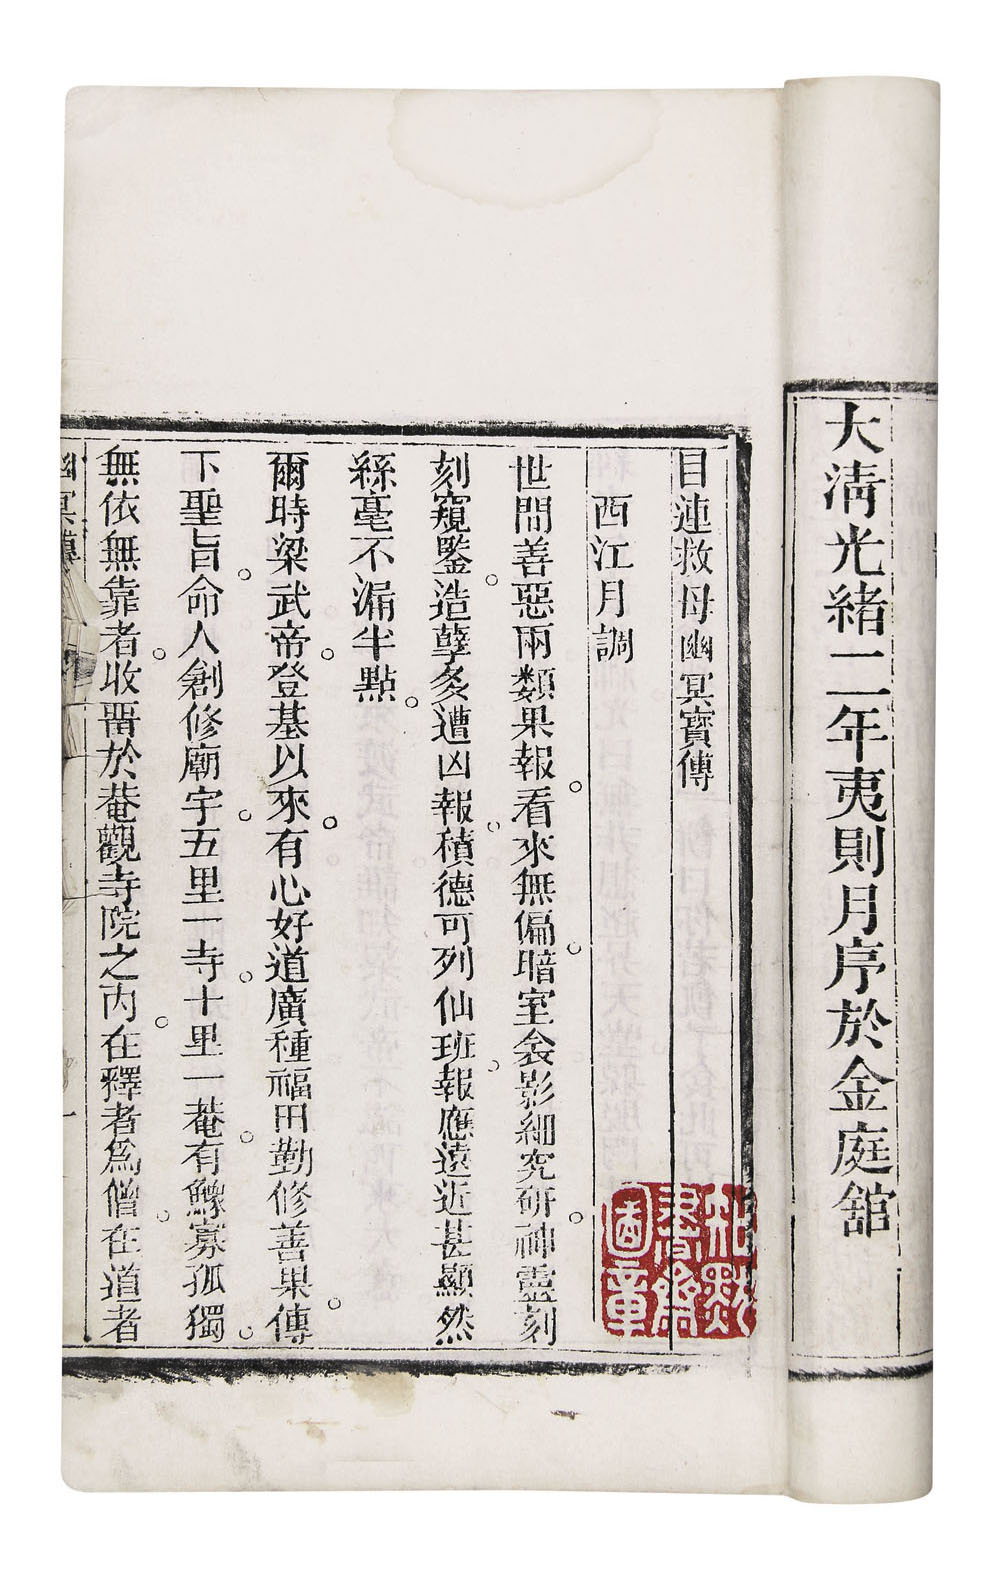 大淸光緒二年夷則月序於金庭舘
目連救母幽冥寶傳
西江月調
世間善惡兩類果報看來無偏暗室衾影細究硏神靈刻
刻窺鑒造孽多遭凶報積德可列仙班報應遠近甚顯然
絲毫不漏半點
爾時梁武帝登基以來有心好道廣種福田勤修善果傳
下聖旨命人創修廟宇五里一寺十里一菴有鰥寡孤獨
無依無靠者收留於菴觀寺院之內在釋者爲僧在道者
幽冥傳
一